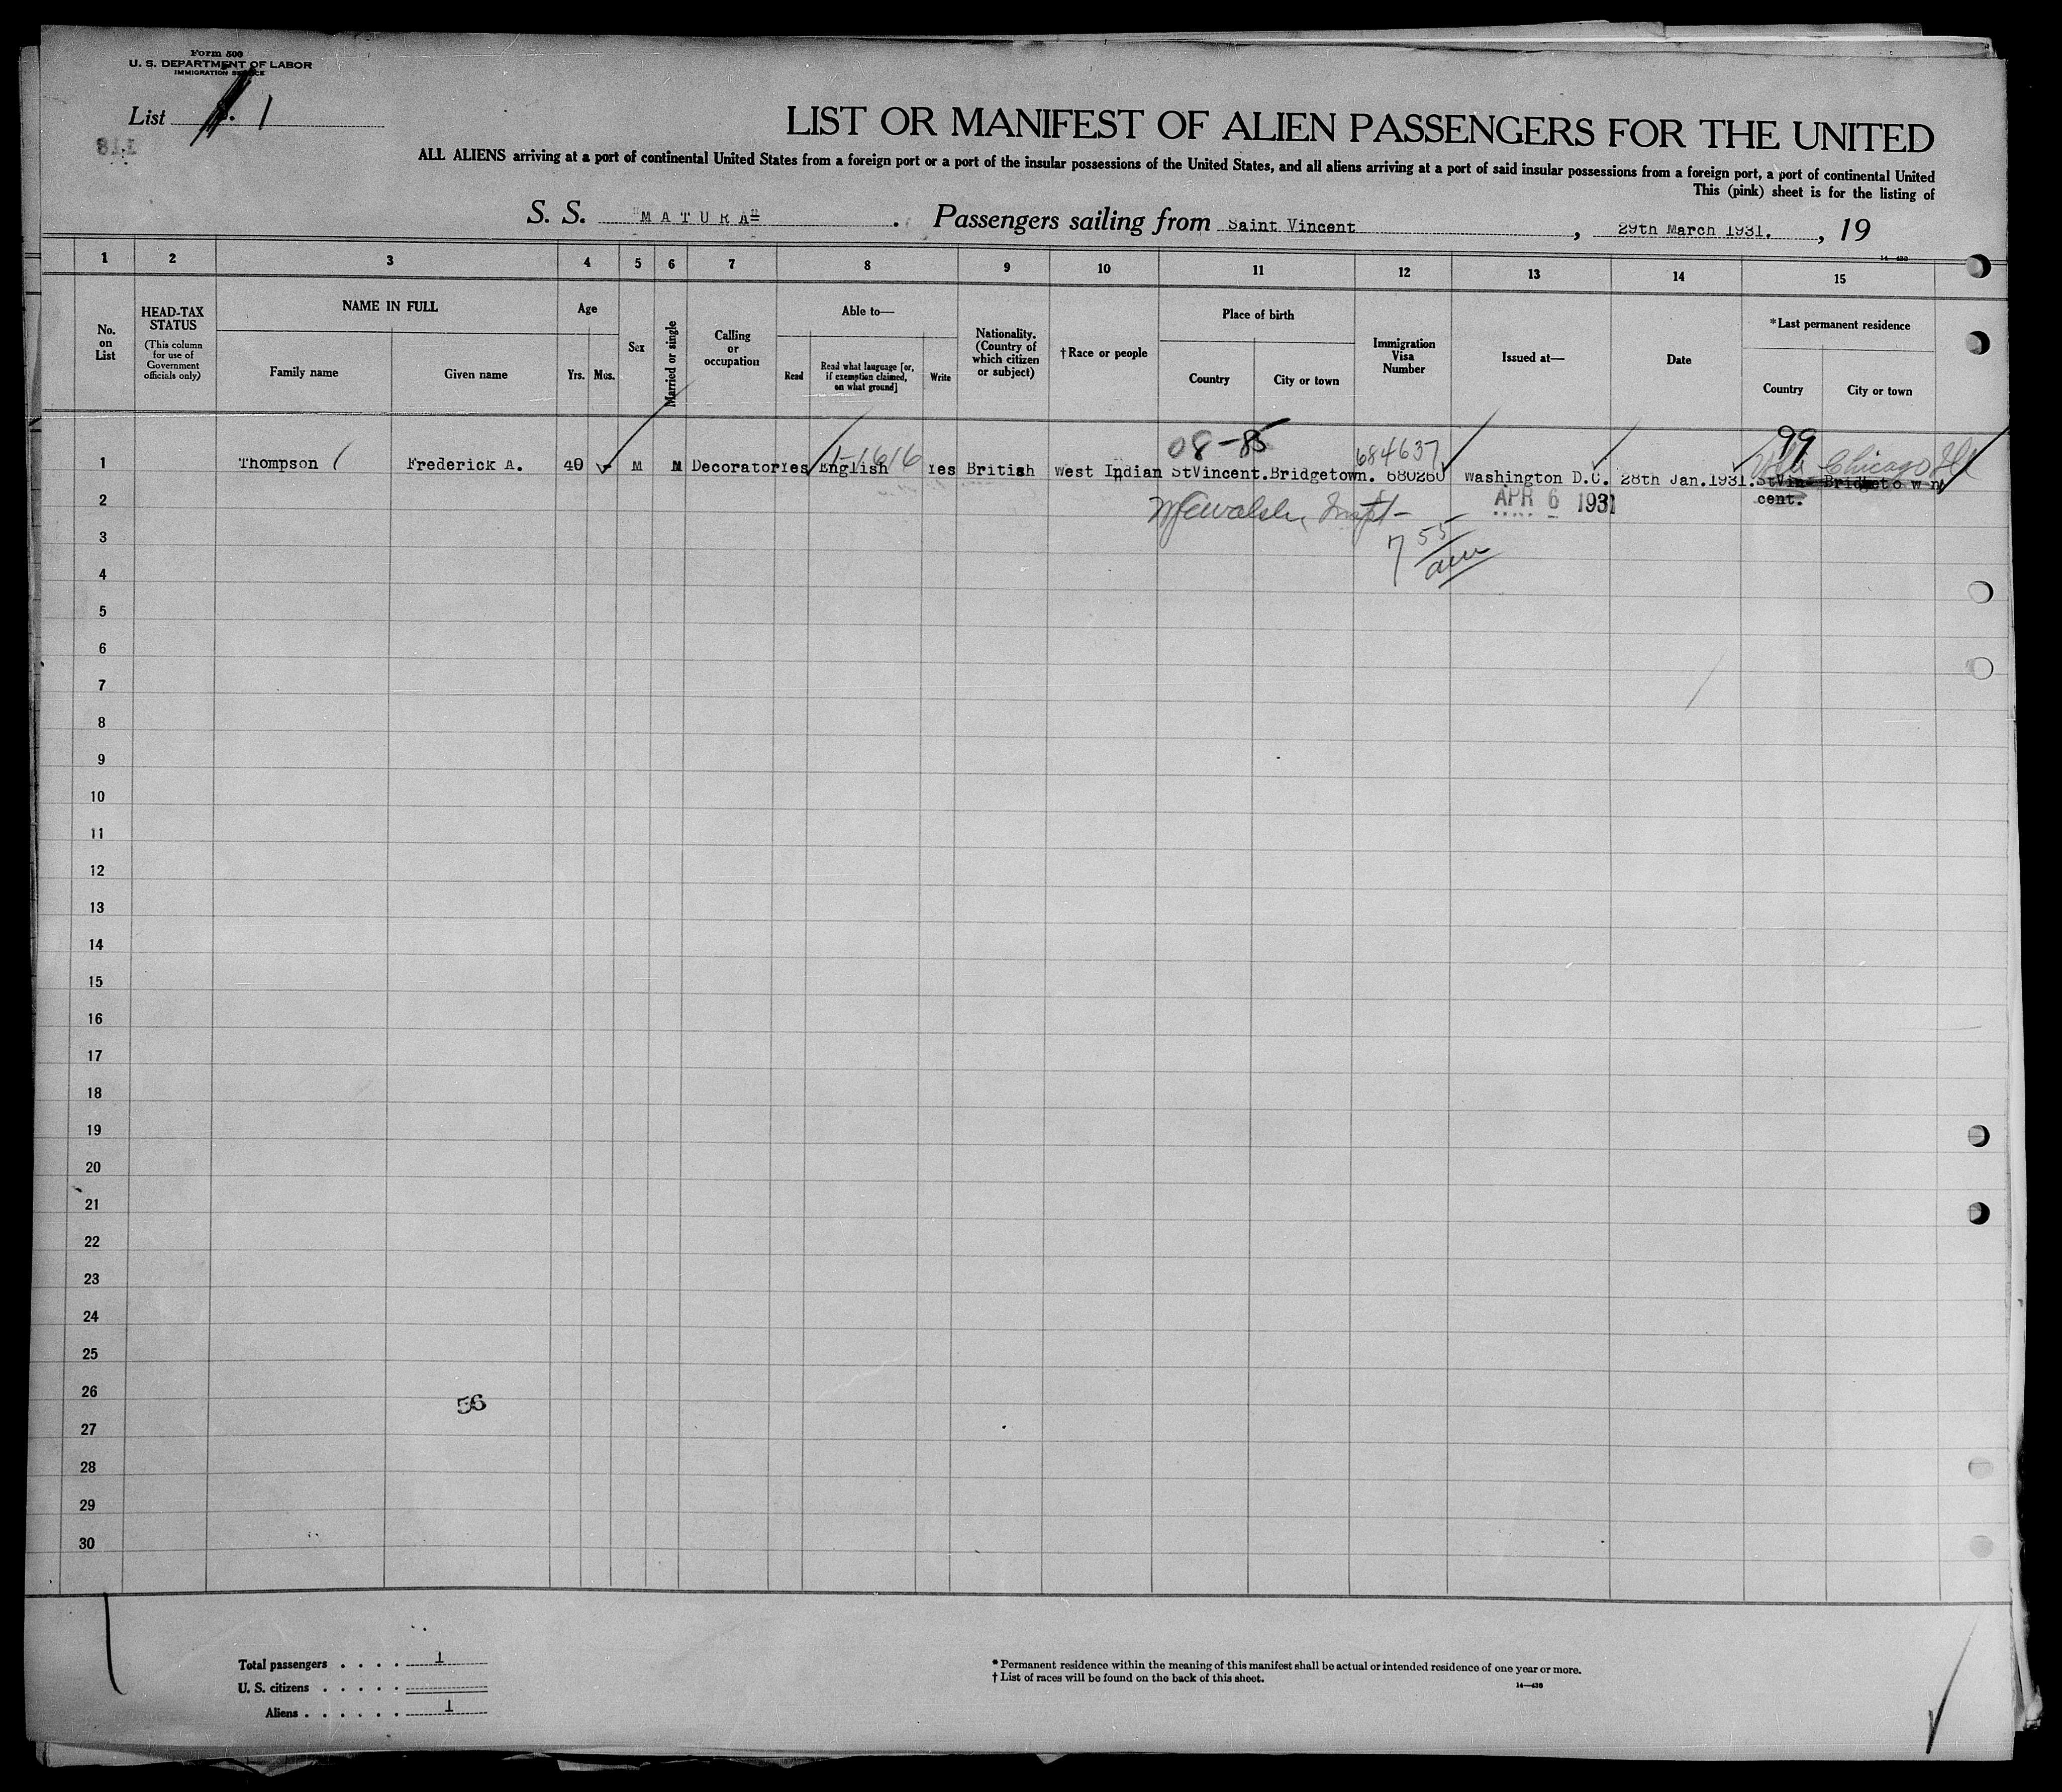 Form 500
U. S. DEPARTMENT OF LABOR
IMMIGRATION SERVICE
List 1
118
LIST OR MANIFEST OF ALIEN PASSENGERS FOR THE UNITED
ALL ALIENS arriving at a port of continental United States from a foreign port or a port of the insular possessions of the United States, and all aliens arriving at a port of said insular possessions from a foreign port, a port of continental United
This (pink) sheet is for the listing of
S. S. "MATURA" . Passengers sailing from Saint Vincent , 29th March 1931. , 19
14—430
1 2 3 4 5 6 7 8 9 10 11 12 13 14 15
No. on List
HEAD-TAX STATUS
(This column for use of Government officials only)
NAME IN FULL
Family name Given name
Age
Yrs. Mos.
Sex
Married or single
Calling or occupation
Able to—
Read
Read what language [or, if exemption claimed, on what ground]
Write
Nationality. (Country of which citizen or subject)
†Race or people
Place of birth
Country City or town
Immigration Visa Number
Issued at—
Date
*Last permanent residence
Country City or town
08-85 684637 99
1-1616 Chicago Ill
1 Thompson Frederick A. 40 M M Decorator Yes English Yes British West Indian StVincent. Bridgetown. 680260 Washington D.C. 28th Jan.1931. StVin- Bridgetown
cent.
2 Inspt- APR 6 1931
3 7 55
am
4
5
6
7
8
9
10
11
12
13
14
15
16
17
18
19
20
21
22
23
24
25
26
56
27
28
29
30
Total passengers . . . . 1
U. S. citizens . . . . .
Aliens . . . . . . 1
* Permanent residence within the meaning of this manifest shall be actual or intended residence of one year or more.
† List of races will be found on the back of this sheet.
14—430